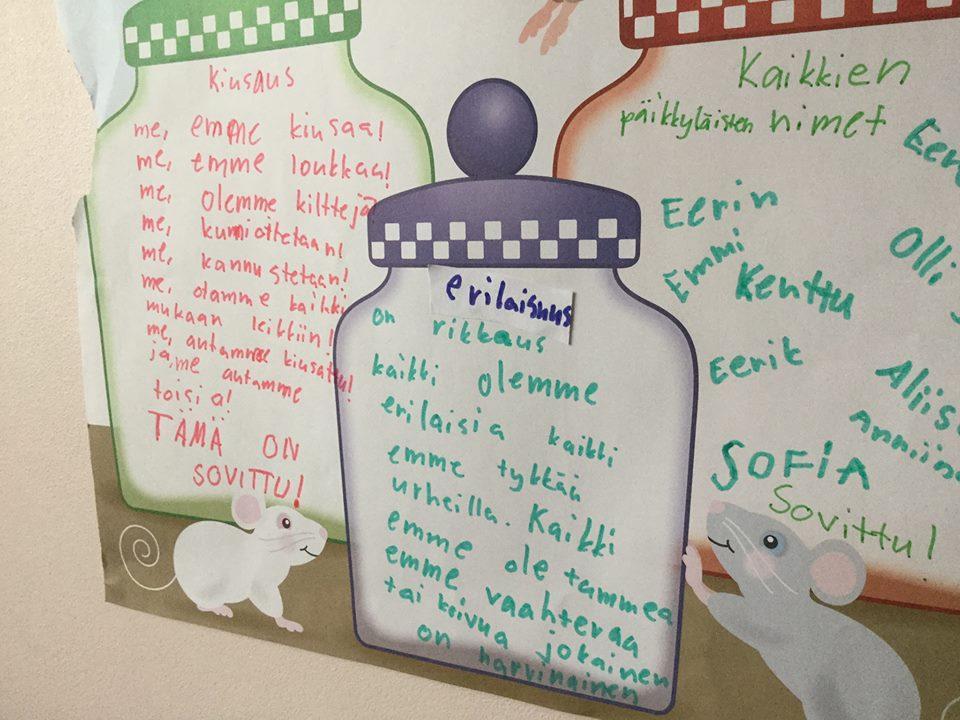 kiusaus
me, emme kiusaa!
me, emme loukkaa!
me, olemme kilttejä
me, kumiotetaan!
me, kannustetaan!
me, otamme kaikki
mukaan leikkiin!
me, autamme kiusattu!
ja, me autamme
toisia!
TÄMÄ ON
SOVITTU!
erilaisuus
on rikkaus
kaikki olemme
erilaisia kaikki
emme tykkää
urheilla. Kaikki
emme ole tammea
emme, vaahteraa
tai koivua jokainen
on harvinainen
Kaikkien
päikkyläisten nimet
Eerin
Emmi
Kenttu
Eerik
SOFIA
Sovittu!
Olli